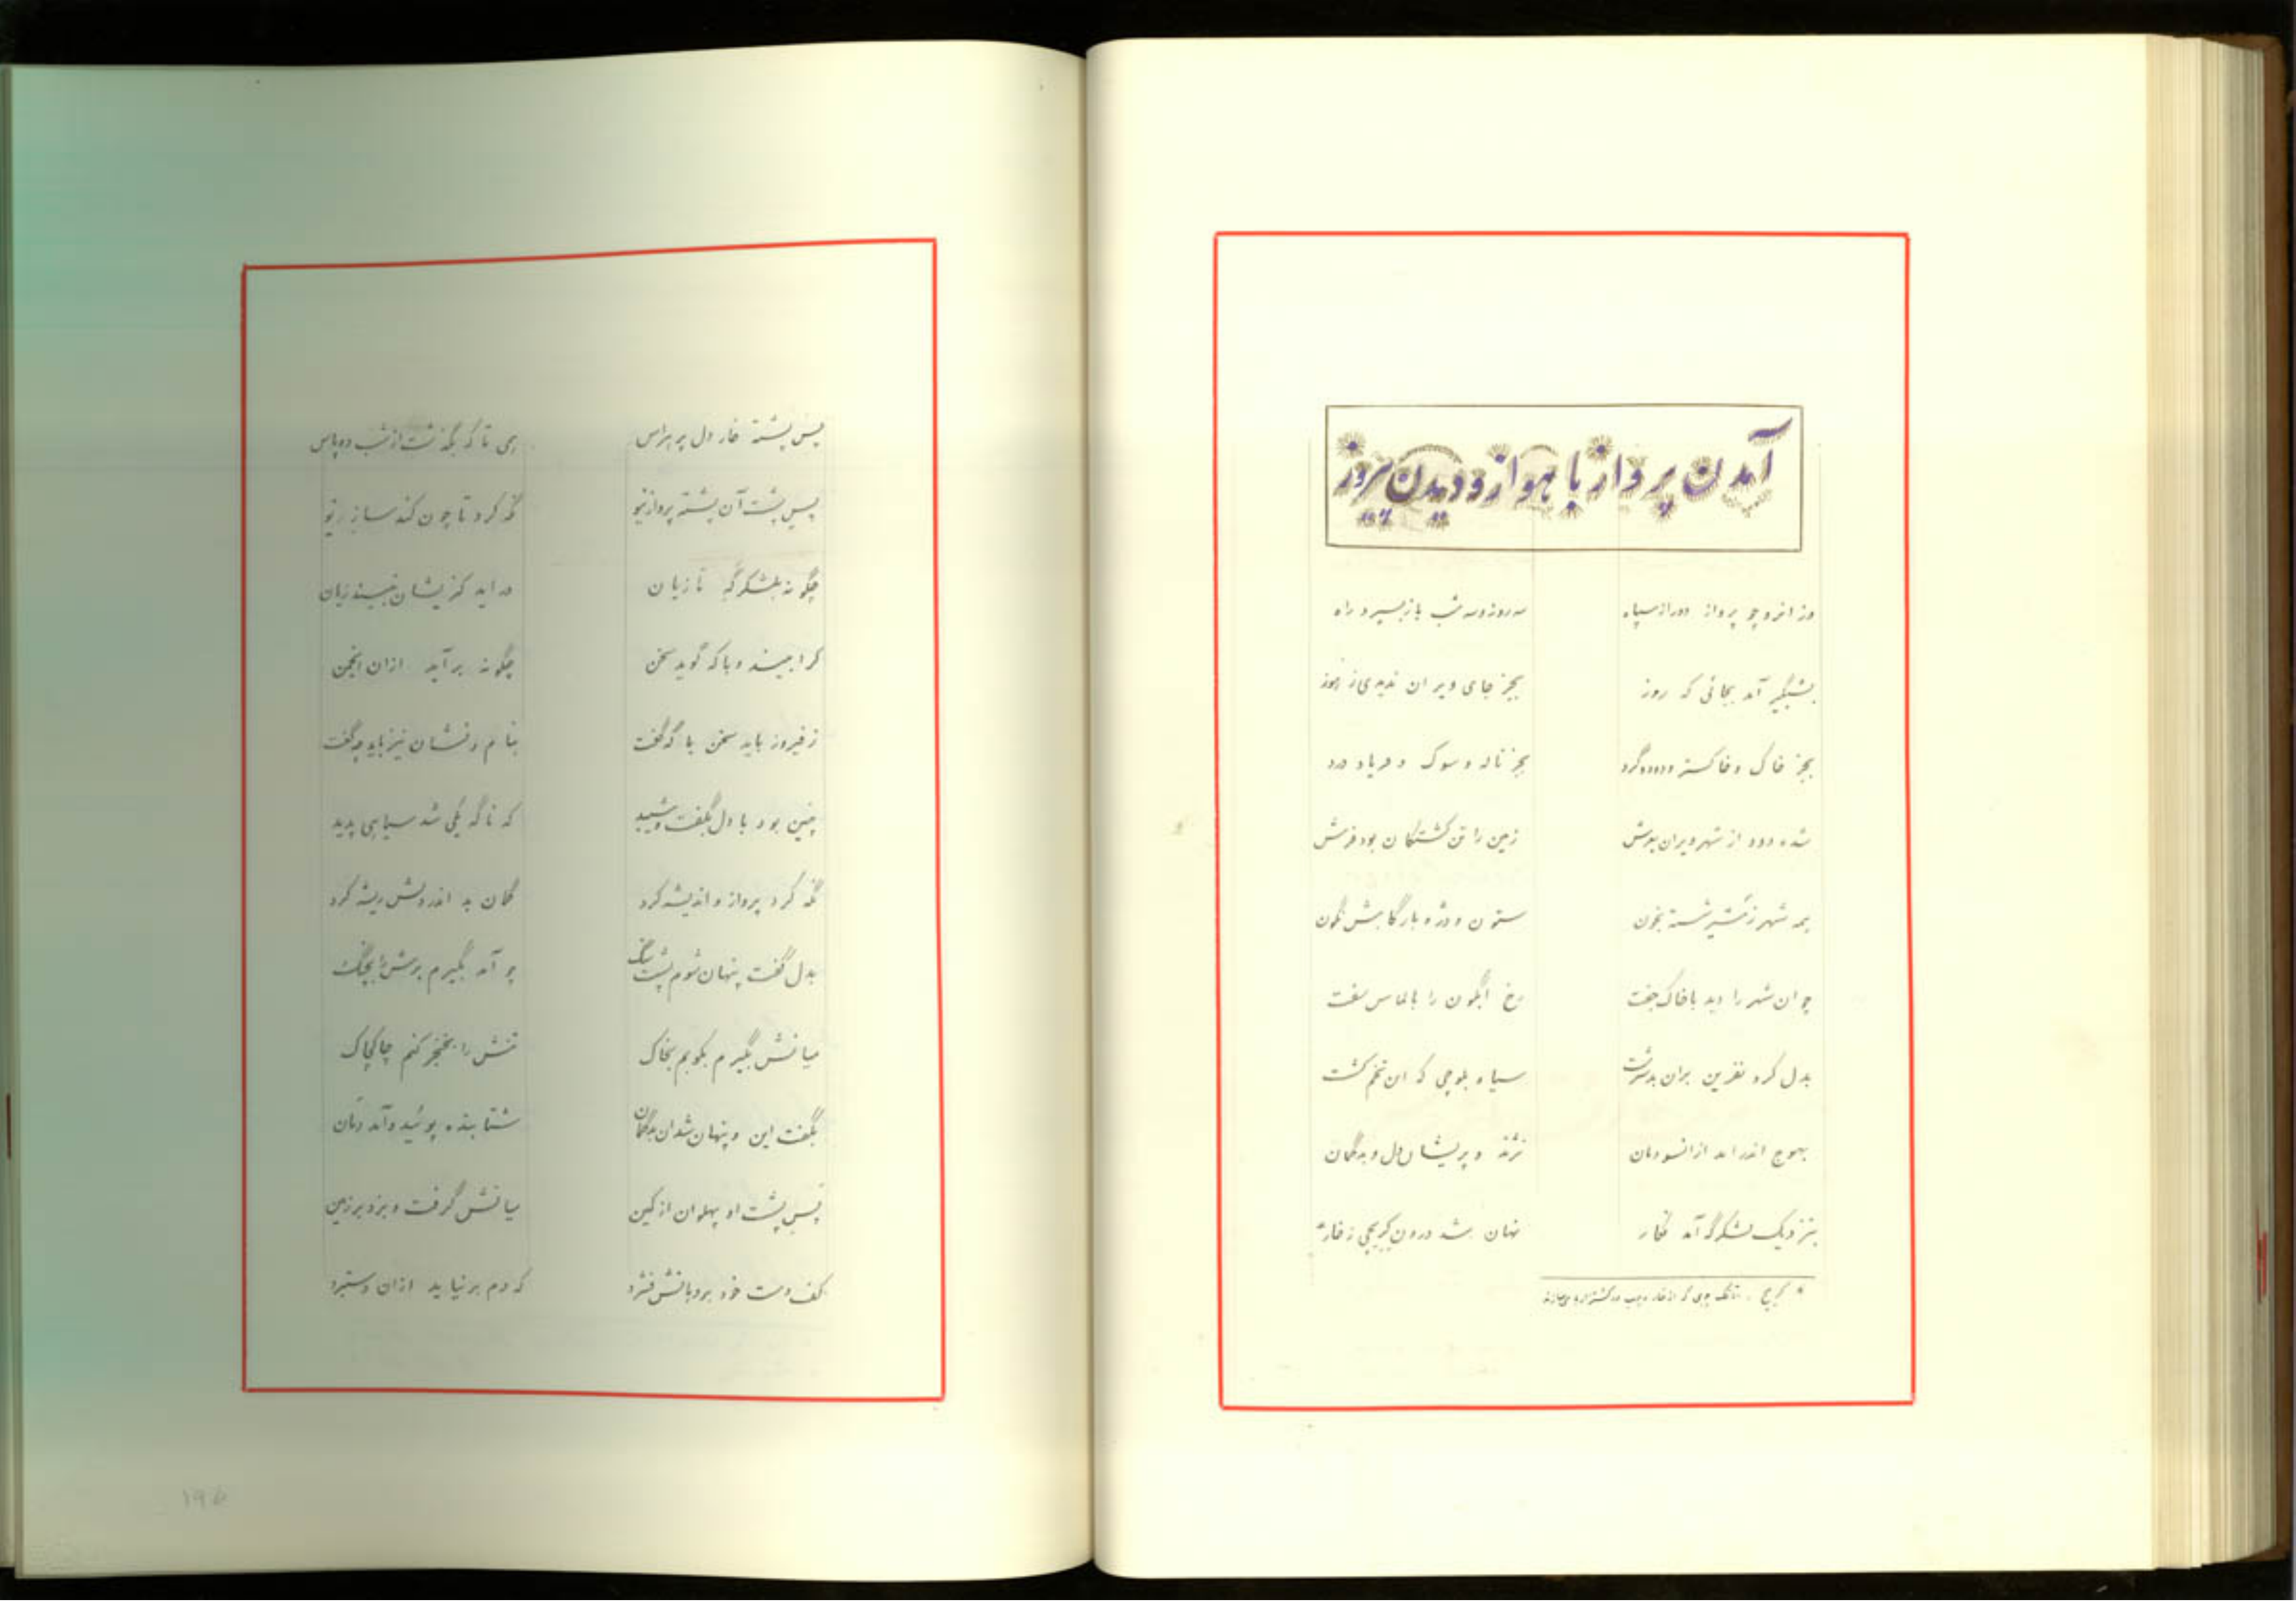 آمدن پرواز با هواز و دیدن پیروز
وز انرو چو پرواز دور از سپاه سه روز و سه شب باز بسپرد راه
بشبگیر آمد بجائی که روز بجز جای ویران ندیدی ز
بجز خاک و خاکستر و دود و گرد بجز ناله و سوک و فریاد درد
شده دود از شهر ویران بعرش زمین را تن کشتگان بود فرش
همه شهر ز شمشیر شسته بخون ستون و دژ و بارگاهش نگون
چو ان شهر را دید با خاک جفت رخ ابگون را بالماس سفت
بدل کرد نفرین بران بدسرشت سیاه بلوچی که ان تخم کشت
بهوج اندر امد ازانسو دمان نژند و پریشان دل و بدگمان
بنزدیک لشکرگه آمد نهان شد درون کریچی ز خار*
* کریچ
پس پشته خار دل پر هراس همی تا که بگذشت از شب دو پاس
پس پشت آن پشته پرواز نیو نگه کرد تا چون کند ساز ریو
چگونه بلشکرگه تازیان در اید کزیشان نبیند زیان
کرا بیند و با که گوید سخن چگونه بر آید ازان انجمن
ز فیروز باید سخن با که گفت بنام و نشان نیز باید چه گفت
چنین بود با دل بگفت و شنید که ناگه یکی شد سیاهی پدید
نگه کرد پرواز و اندیشه کرد گمان بد اندر دلش ریشه کرد
بدل گفت پنهان شوم پشت سنگ چو آمد بگیرم برش را بچنگ
میانش بگیرم بکوبم بخاک تنش را بخنجر کنم چاکچاک
بگفت این و پنهان شد ان بدگمان شتابنده پوئید و آمد دمان
پس پشت او پهلوان از کمین میانش گرفت و بزد بر زمین
کف دست خود بر دهانش فشرد که دم بر نیاید ازان دستبرد